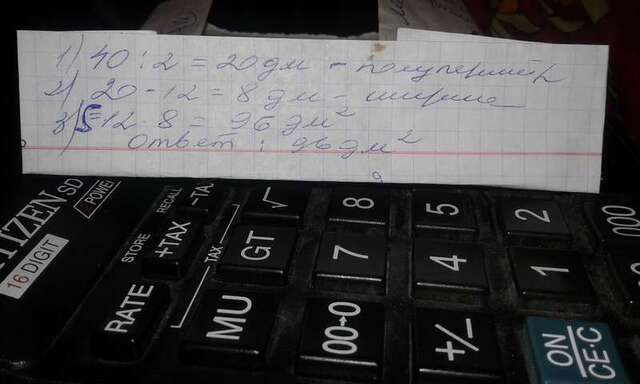 1) 40 : 2 = 20 дм - полупериметр
2) 20 - 12 = 8 дм - ширина
3) S = 12 · 8 = 96 дм²
Ответ : 96 дм²
CITIZEN SD
16 DIGIT
POWE
RECALL
STORE
-TA
+TAX
TAX
RATE
√
GT
MU
8
7
00→0
5
4
+/-
2
1
ON
CE·C
000